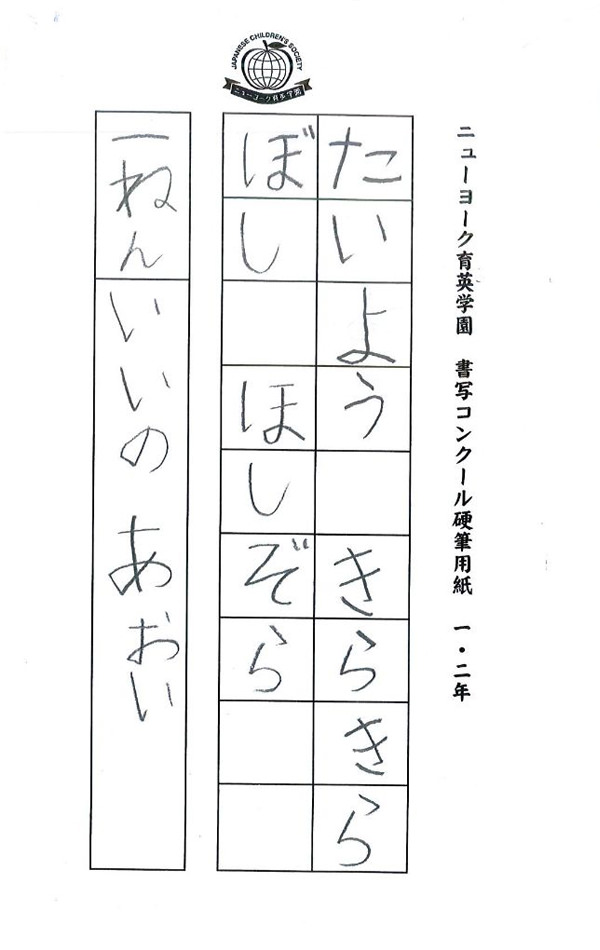 JAPANESE CHILDREN'S SOCIETY
ニューヨーク育英学園
ニューヨーク育英学園　書写コンクール硬筆用紙　一・二年
たいよう　きらきら
ぼし　ほしぞら
一ねん　いいの　あおい